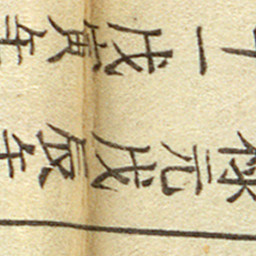 禄元戊辰年
十一戊寅年